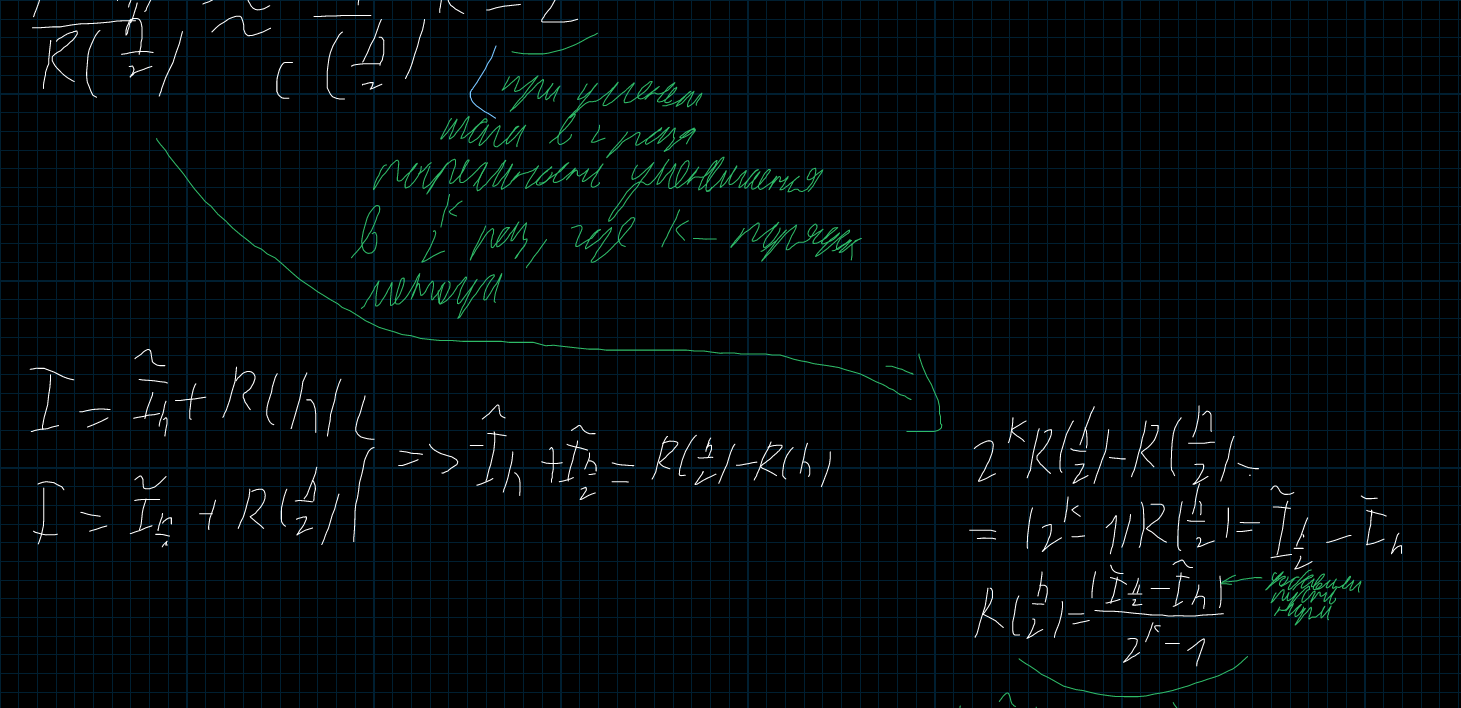 R(h/2) ≈ C (h/2)^k = 2
при уменьшен
шага в 2 раза
погрешность уменьшается
в 2^k раз, где k – порядок
метода
I = Ĩ_h + R(h)
I = Ĩ_{h/2} + R(h/2)
=> -Ĩ_h + Ĩ_{h/2} = R(h/2) - R(h)
2^k R(h/2) - R(h/2) =
= (2^k - 1) R(h/2) = Ĩ_{h/2} - Ĩ_h
R(h/2) = |Ĩ_{h/2} - Ĩ_h| / (2^k - 1)